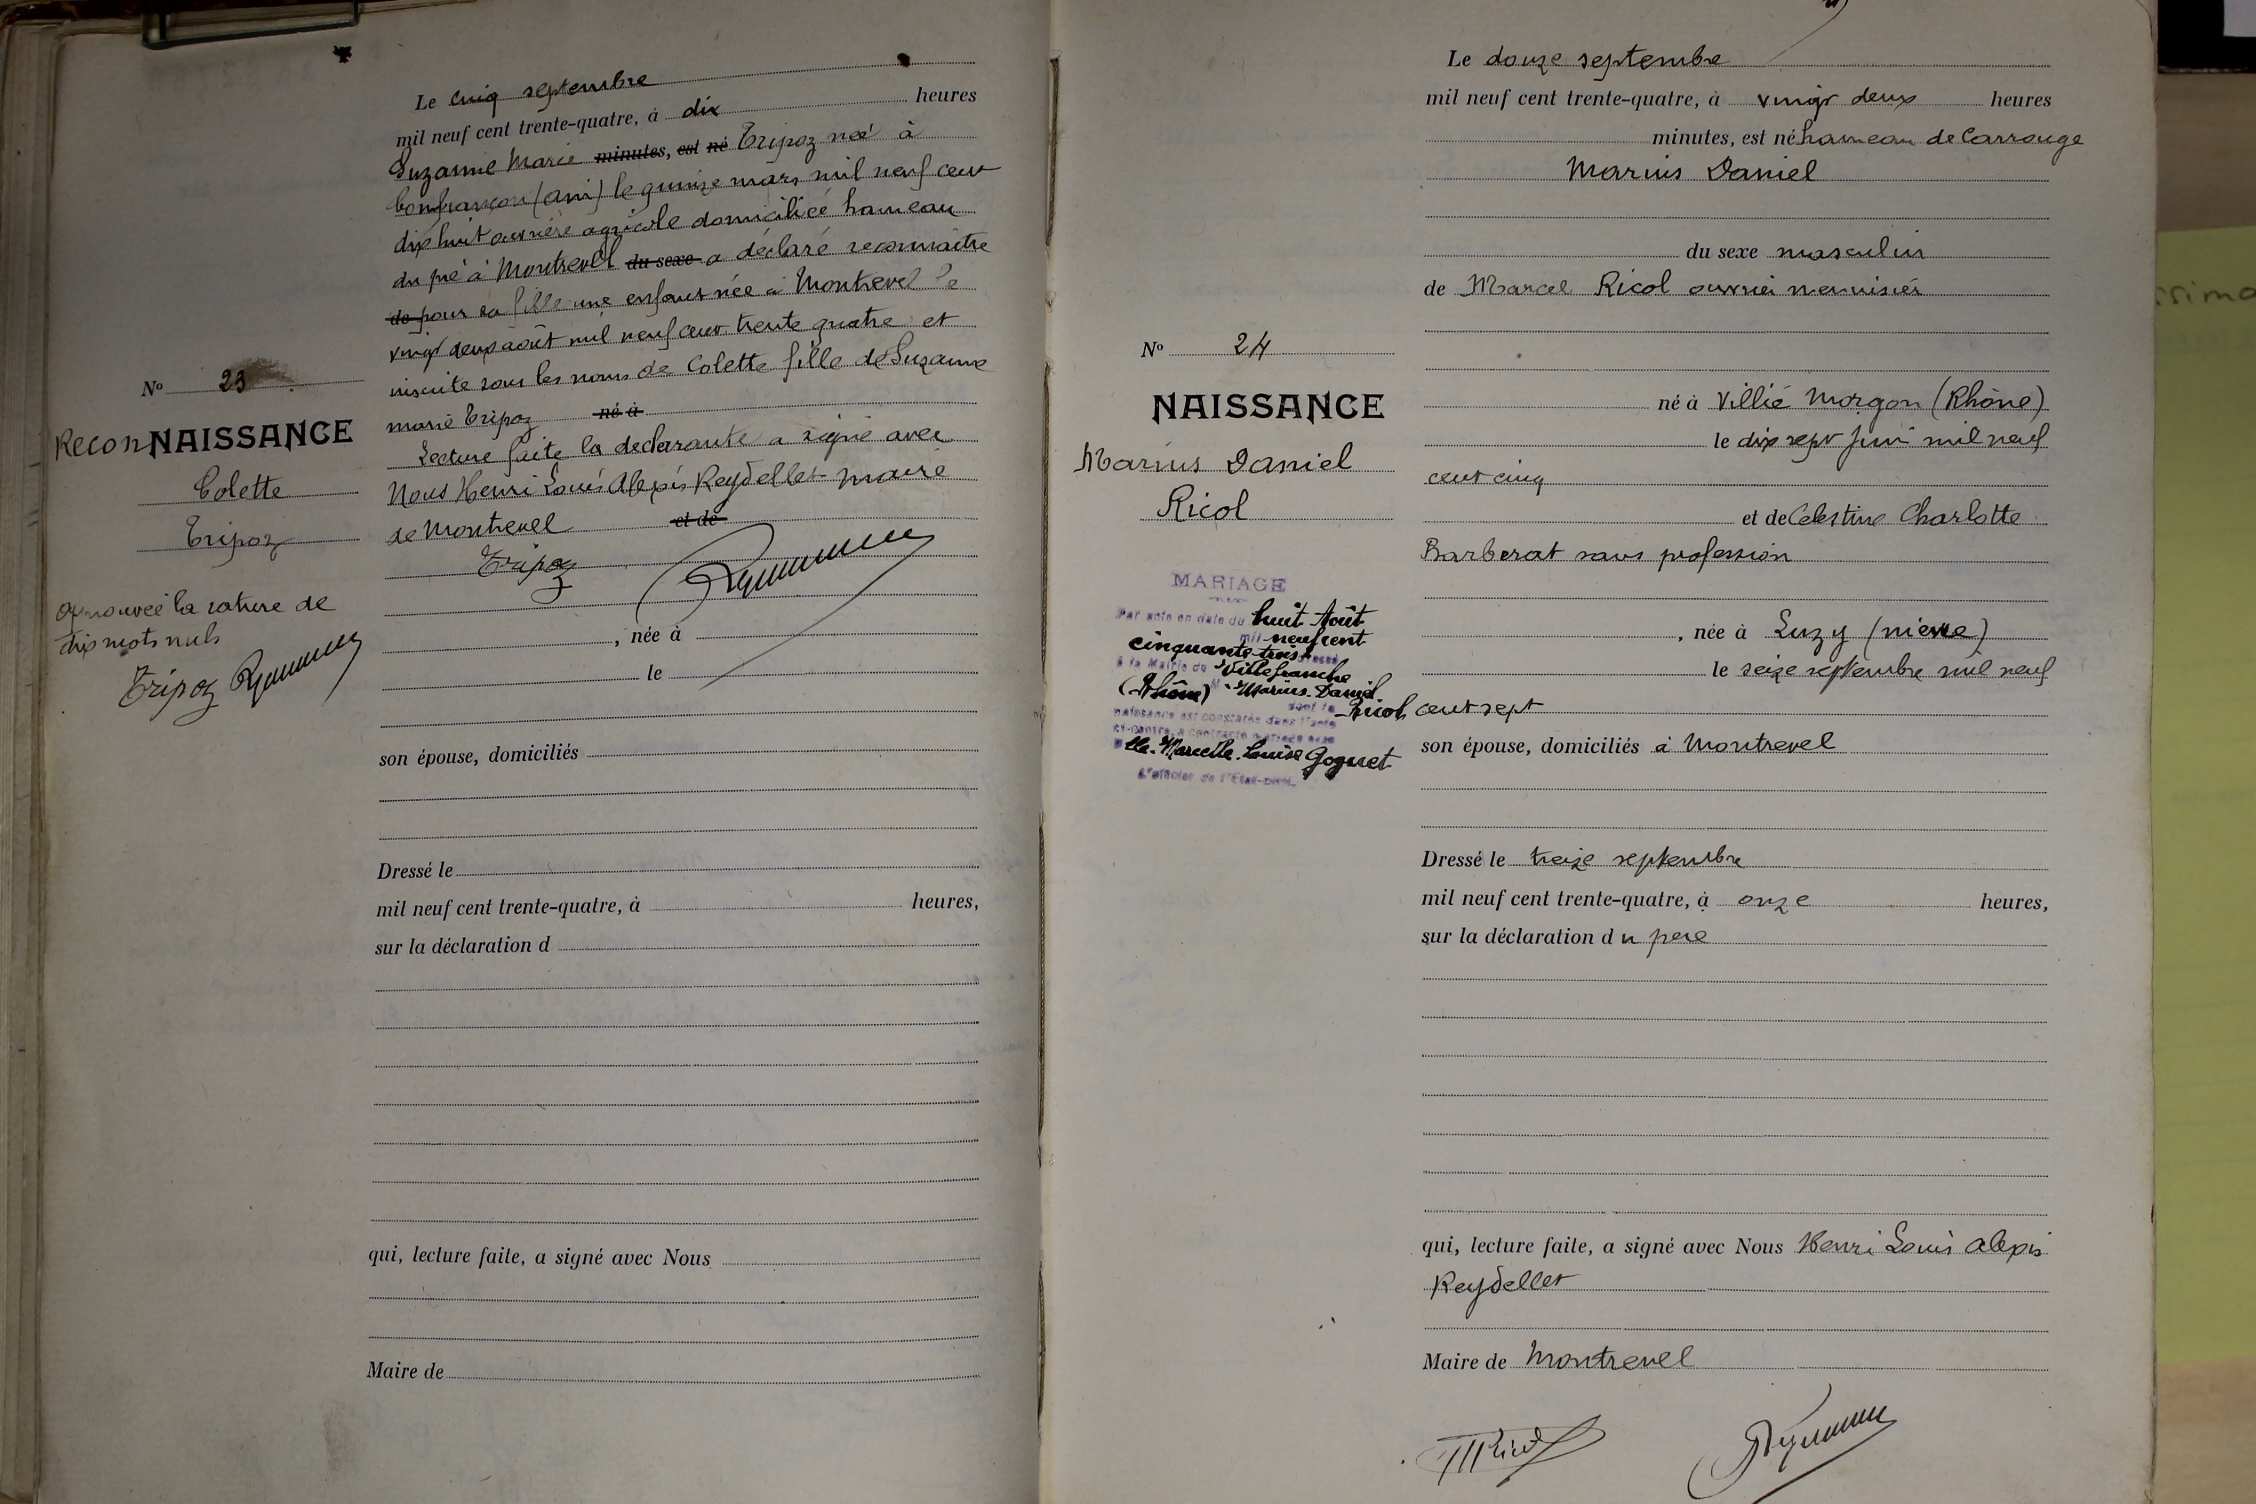 Le cinq septembre
mil neuf cent trente-quatre, à dix heures
Suzanne Marie minutes, est né Tripoz née à
Confrançon (Ain) le quinze mars mil neuf cent
dix huit ouvrière agricole domiciliée hameau
du pré à Montrevel du sexe a déclaré reconnaitre
de pour sa fille une enfant née à Montrevel le
vingt deux août mil neuf cent trente quatre et
inscrite sous les noms de Colette fille de Suzanne
marie Tripoz né à
Lecture faite la declarante a signé avec
Nous Henri Louis Alexis Reydellet maire
de Montrevel et de
Tripoz
, née à
le
son épouse, domiciliés
Dressé le
mil neuf cent trente-quatre, à heures,
sur la déclaration d
qui, lecture faite, a signé avec Nous
Maire de
No 23
ReconNAISSANCE
Colette
Tripoz
approuvée la rature de
dix mots nuls
Tripoz
Le douze septembre
mil neuf cent trente-quatre, à vingt deux heures
minutes, est né hameau de Carrouge
Marius Daniel
du sexe masculin
de Marcel Ricol ouvrier menuisier
né à Villié Morgon (Rhône)
le dix sept juin mil neuf
cent cinq
et de Celestine Charlotte
Barberat sans profession
, née à Luzy (nievre)
le seize septembre mil neuf
cent sept
son épouse, domiciliés à Montrevel
Dressé le treize septembre
mil neuf cent trente-quatre, à onze heures,
sur la déclaration du pere
qui, lecture faite, a signé avec Nous Henri Louis Alexis
Reydellet
Maire de Montrevel
No 24
NAISSANCE
Marius Daniel
Ricol
MARIAGE
Par acte en date du huit Août
mil neuf cent
cinquante-trois dressé
à la Mairie de Villefranche
(Rhône) M Marius Daniel
Ricol dont la
naissance est constatée dans l'acte
ci-contre, a contracté mariage avec
Melle Marcelle Louise Goguet
L'officier de l'Etat-civil.